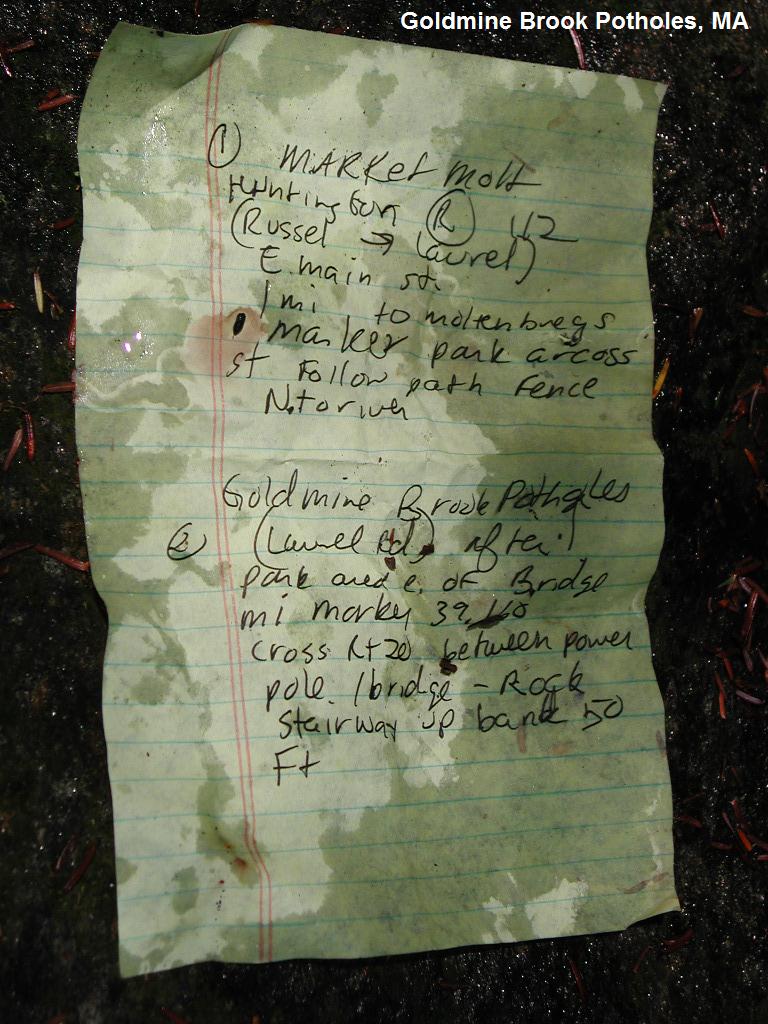 Goldmine Brook Potholes, MA
① MARKet Molt
Huntington Ⓡ 112
(Russel → Laurel)
E. main st.
1 mi to moltenbregs
marker park arcoss
st Follow path Fence
N. to river
Goldmine Brook Potholes
② (Laurel Rd) after
park area e. of Bridge
mi marky 39.
cross Rt 20 between power
pole / bridge - Rock
stairway up bank 50
Ft